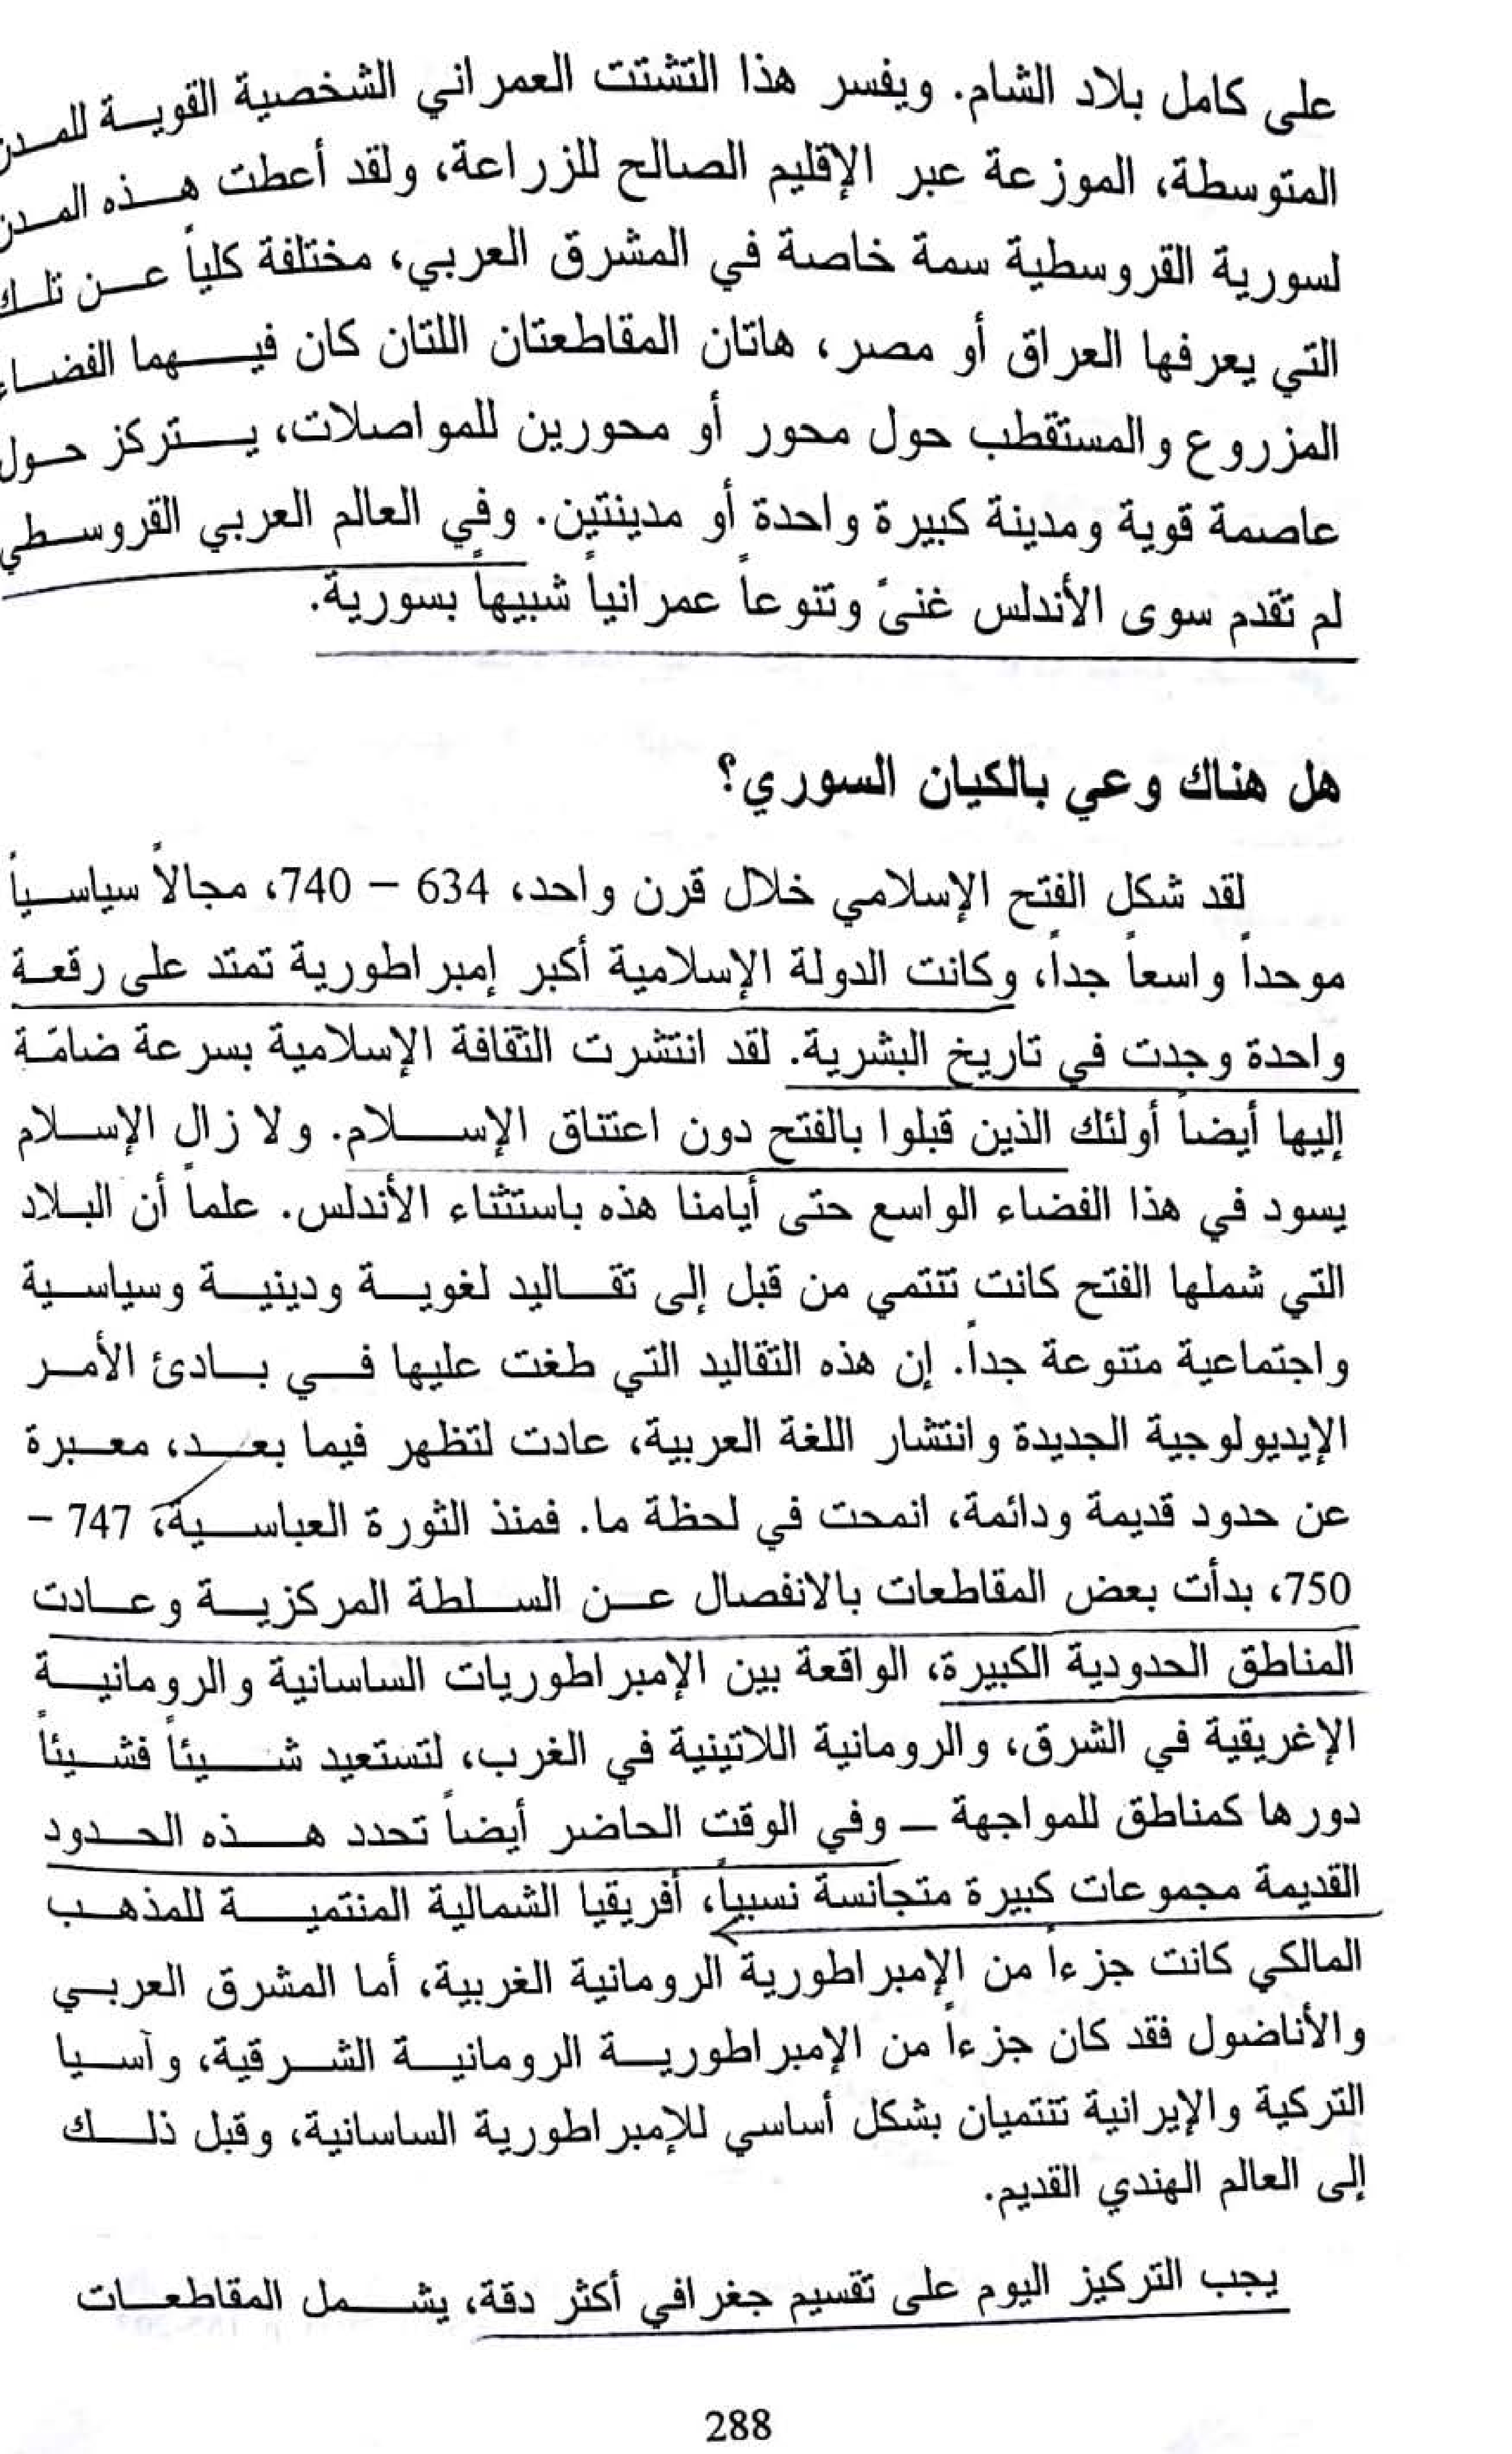 على كامل بلاد الشام. ويفسر هذا التشتت العمراني الشخصية القوية للمدن
المتوسطة، الموزعة عبر الإقليم الصالح للزراعة، ولقد أعطت هذه المدن
لسورية القروسطية سمة خاصة في المشرق العربي، مختلفة كلياً عن تلك
التي يعرفها العراق أو مصر، هاتان المقاطعتان اللتان كان فيهما الفضاء
المزروع والمستقطب حول محور أو محورين للمواصلات، يتركز حول
عاصمة قوية ومدينة كبيرة واحدة أو مدينتين. وفي العالم العربي القروسطي
لم تقدم سوى الأندلس غنىً وتنوعاً عمرانياً شبيهاً بسورية.
هل هناك وعي بالكيان السوري؟
لقد شكل الفتح الإسلامي خلال قرن واحد، 634 – 740، مجالاً سياسياً
موحداً واسعاً جداً، وكانت الدولة الإسلامية أكبر إمبراطورية تمتد على رقعة
واحدة وجدت في تاريخ البشرية. لقد انتشرت الثقافة الإسلامية بسرعة ضامّة
إليها أيضاً أولئك الذين قبلوا بالفتح دون اعتناق الإسلام. ولا زال الإسلام
يسود في هذا الفضاء الواسع حتى أيامنا هذه باستثناء الأندلس. علماً أن البلاد
التي شملها الفتح كانت تنتمي من قبل إلى تقاليد لغوية ودينية وسياسية
واجتماعية متنوعة جداً. إن هذه التقاليد التي طغت عليها في بادئ الأمر
الإيديولوجية الجديدة وانتشار اللغة العربية، عادت لتظهر فيما بعد، معبرة
عن حدود قديمة ودائمة، انمحت في لحظة ما. فمنذ الثورة العباسية، 747 –
750، بدأت بعض المقاطعات بالانفصال عن السلطة المركزية وعادت
المناطق الحدودية الكبيرة، الواقعة بين الإمبراطوريات الساسانية والرومانية
الإغريقية في الشرق، والرومانية اللاتينية في الغرب، لتستعيد شيئاً فشيئاً
دورها كمناطق للمواجهة – وفي الوقت الحاضر أيضاً تحدد هذه الحدود
القديمة مجموعات كبيرة متجانسة نسبياً، أفريقيا الشمالية المنتمية للمذهب
المالكي كانت جزءاً من الإمبراطورية الرومانية الغربية، أما المشرق العربي
والأناضول فقد كان جزءاً من الإمبراطورية الرومانية الشرقية، وآسيا
التركية والإيرانية تنتميان بشكل أساسي للإمبراطورية الساسانية، وقبل ذلك
إلى العالم الهندي القديم.
يجب التركيز اليوم على تقسيم جغرافي أكثر دقة، يشمل المقاطعات
288